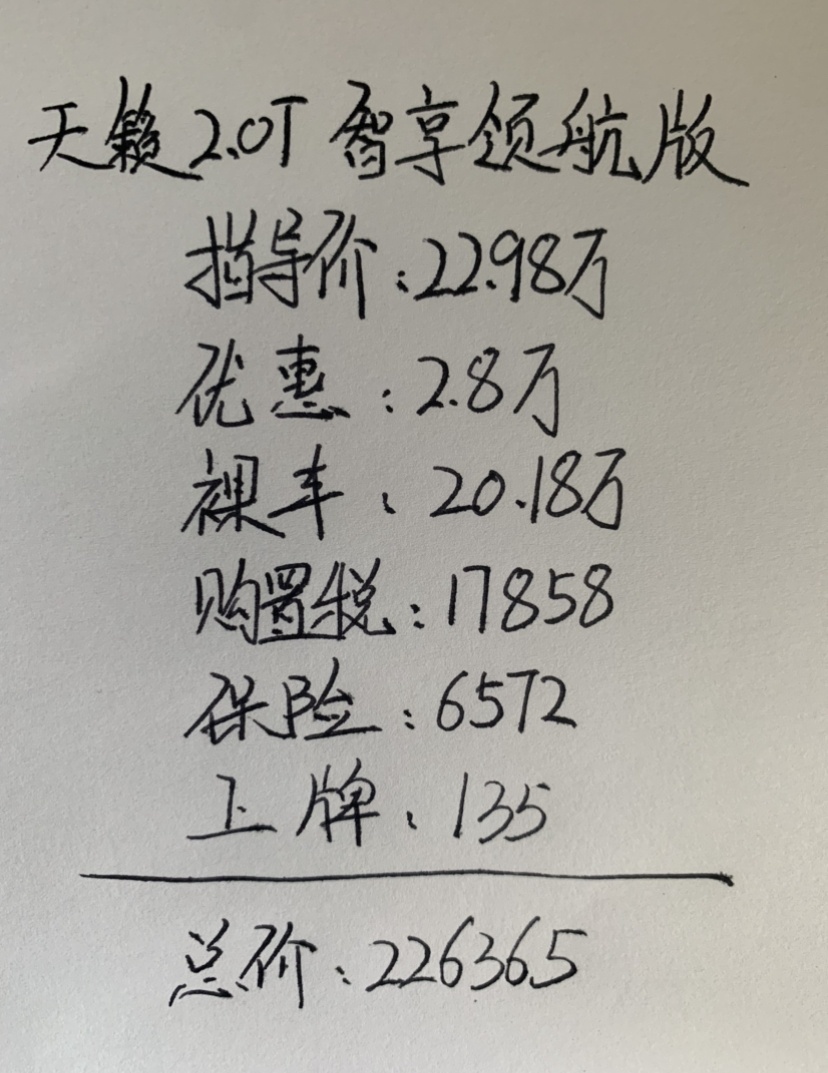 天籁2.0T 智享领航版
指导价:22.98万
优惠:2.8万
裸车:20.18万
购置税:17858
保险:6572
上牌:135
总价:226365